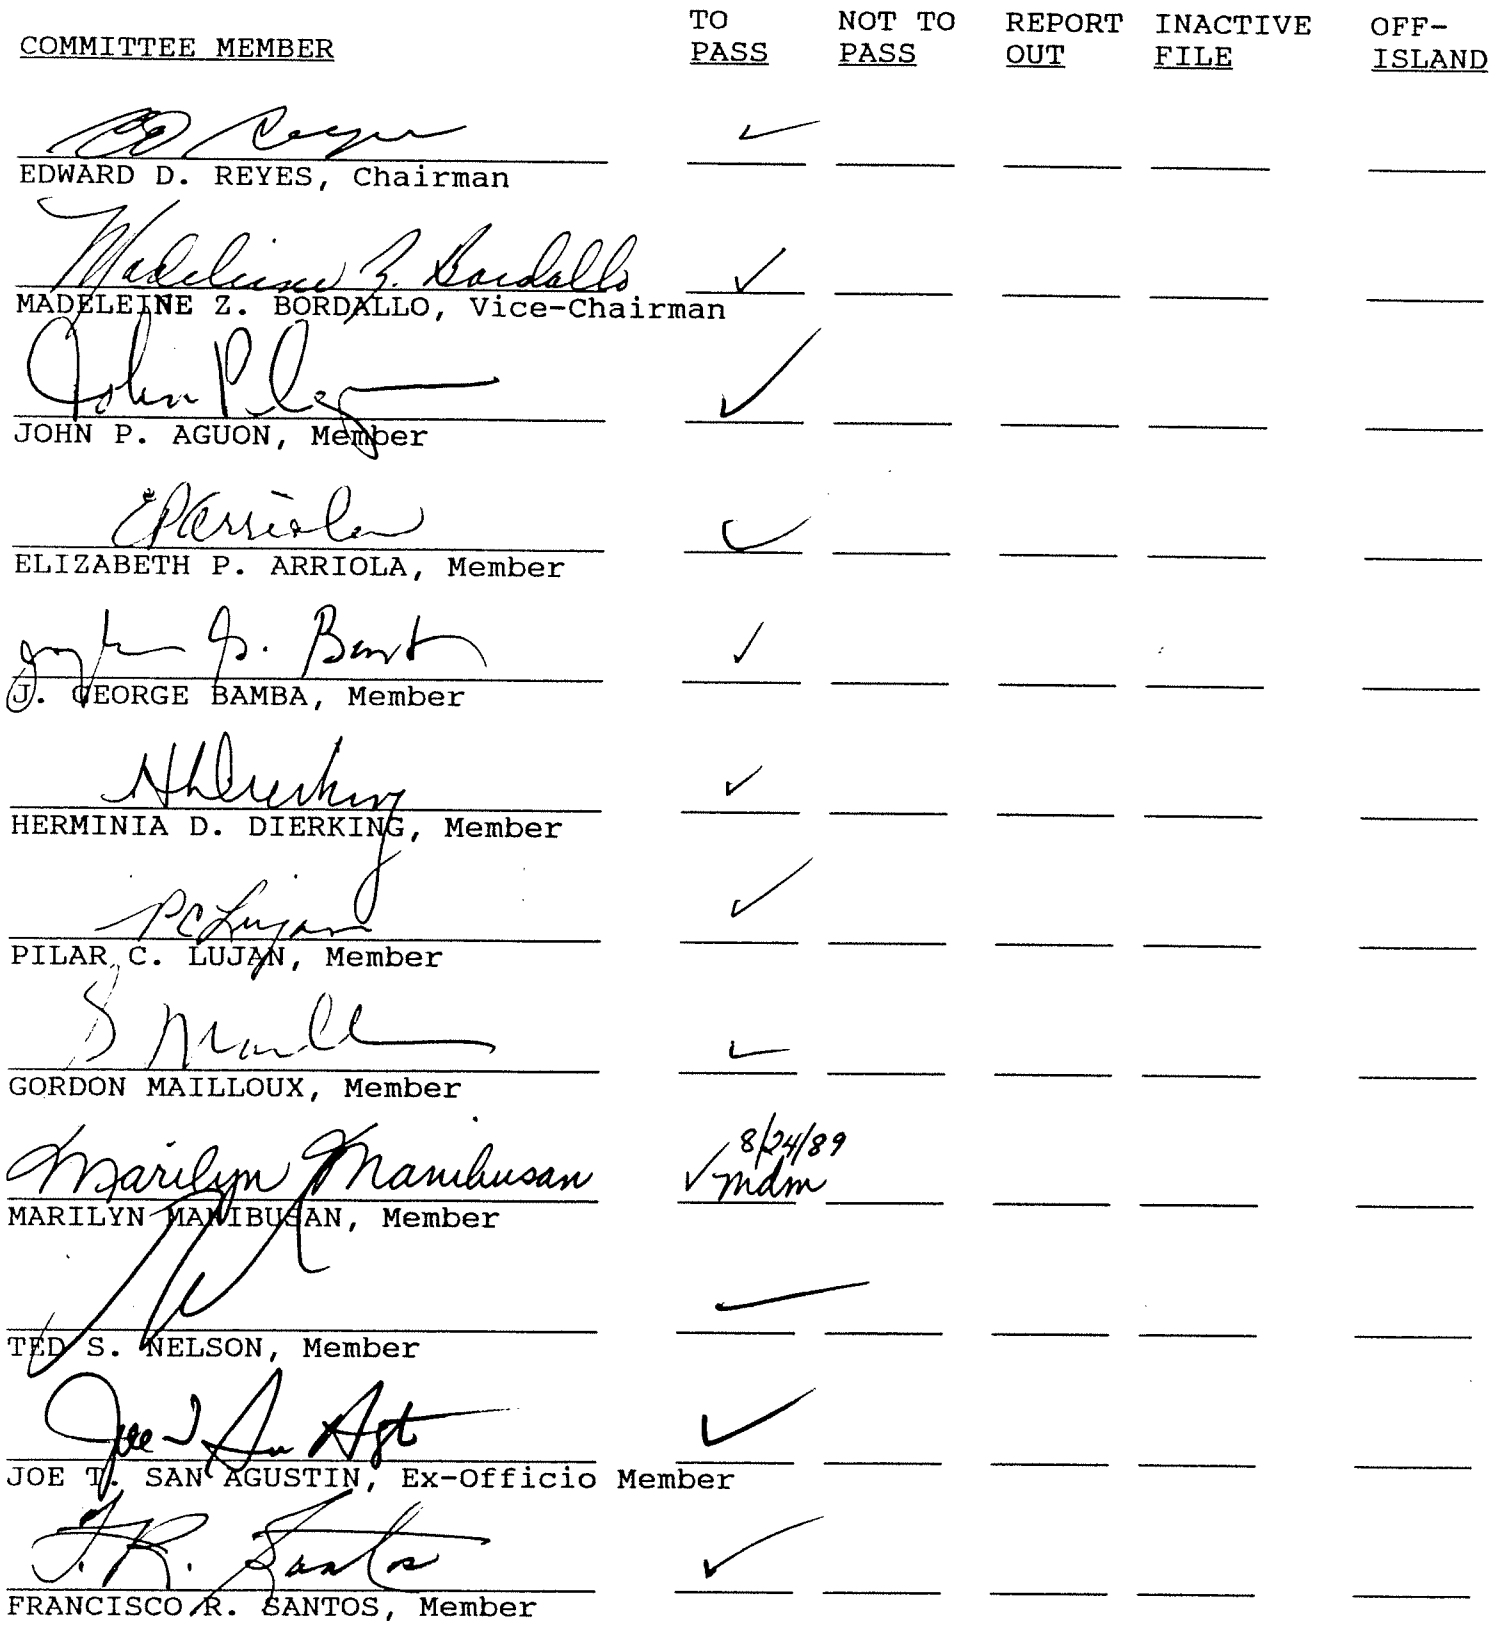 TO NOT TO REPORT INACTIVE OFF-
COMMITTEE MEMBER PASS PASS OUT FILE ISLAND
EDWARD D. REYES, Chairman
Madeleine Z. Bordallo
MADELEINE Z. BORDALLO, Vice-Chairman
John P.
JOHN P. AGUON, Member
EPArriola
ELIZABETH P. ARRIOLA, Member
J. GEORGE BAMBA, Member
HDierking
HERMINIA D. DIERKING, Member
PC Lujan
PILAR C. LUJAN, Member
GORDON MAILLOUX, Member
8/24/89
Marilyn Manibusan ✓ mdm
MARILYN MANIBUSAN, Member
TED S. NELSON, Member
Joe T San Agt
JOE T. SAN AGUSTIN, Ex-Officio Member
F. R. Santos
FRANCISCO R. SANTOS, Member